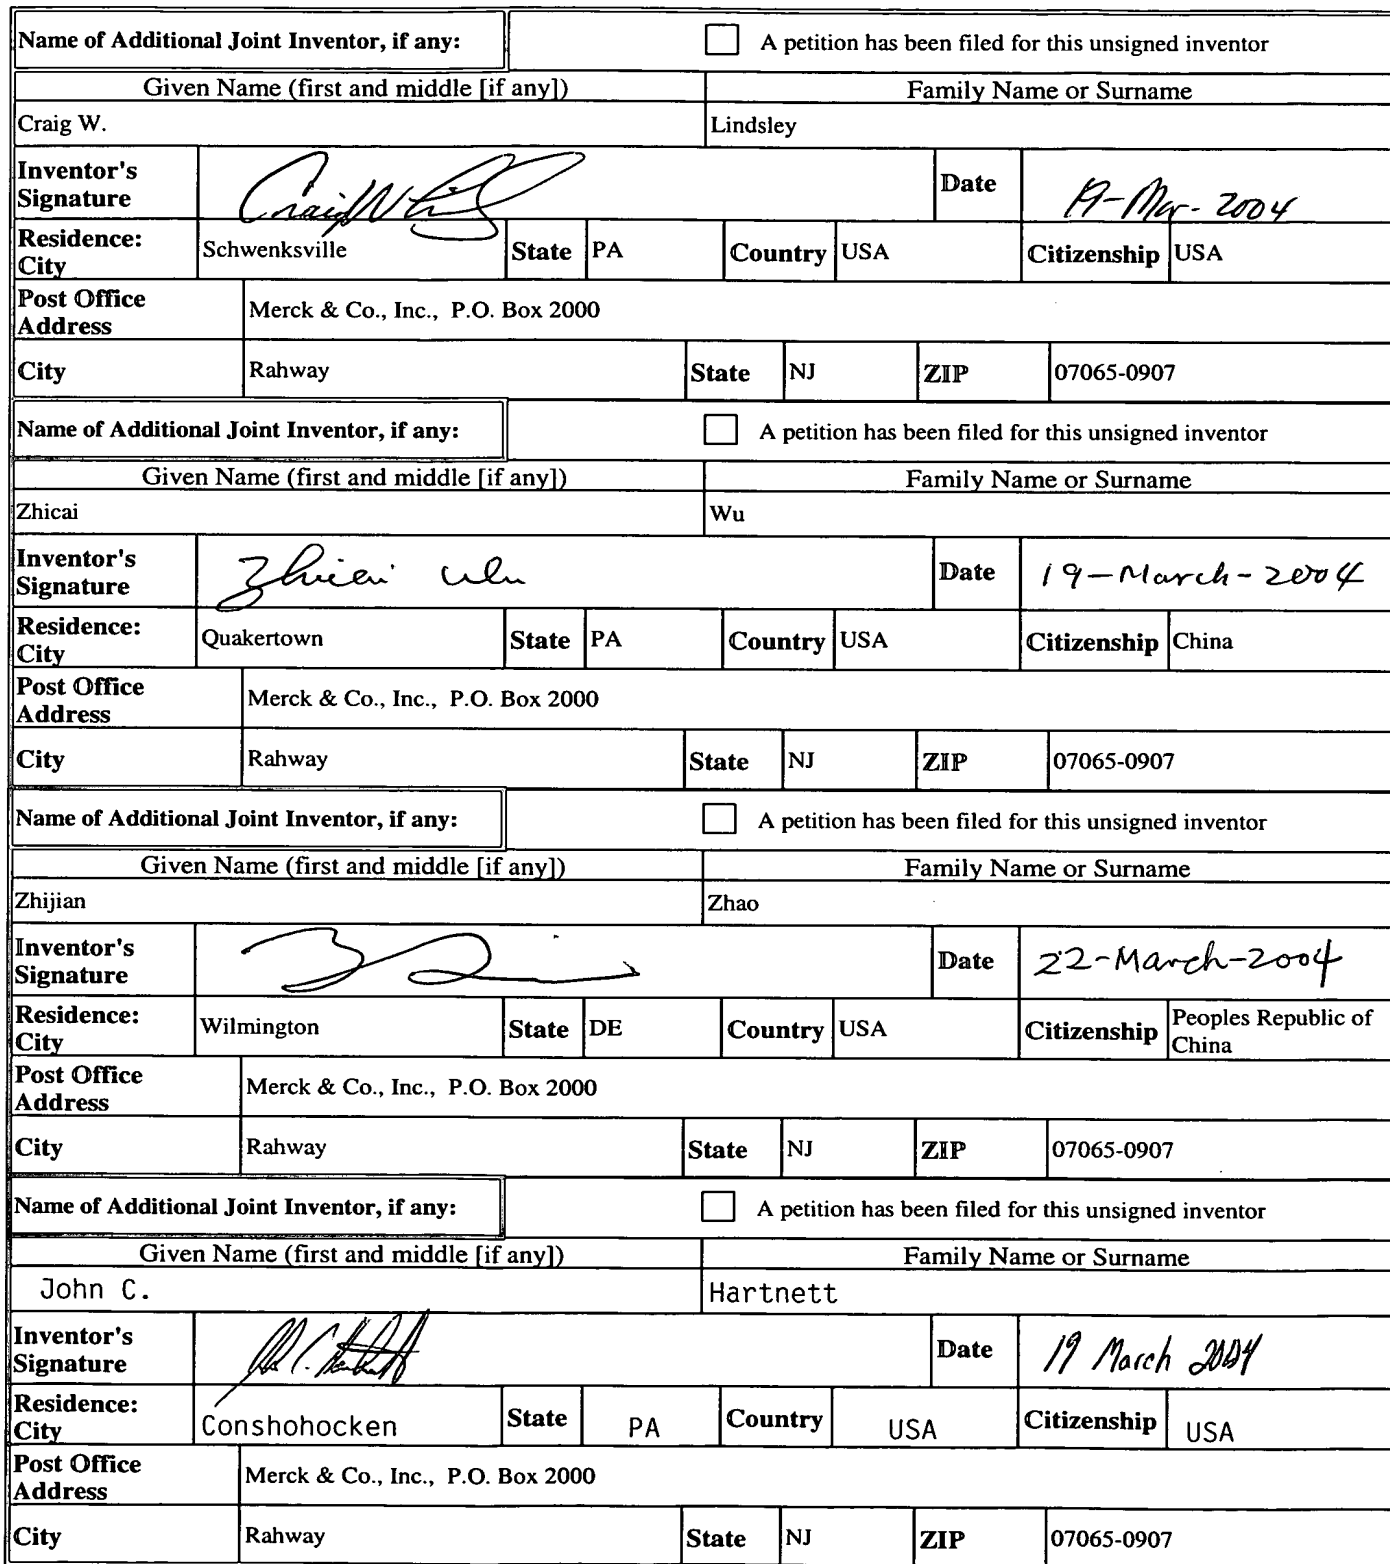 Name of Additional Joint Inventor, if any: A petition has been filed for this unsigned inventor
Given Name (first and middle [if any]) Family Name or Surname
Craig W. Lindsley
Inventor's Signature Date 19-Mar-2004
Residence: City Schwenksville State PA Country USA Citizenship USA
Post Office Address Merck & Co., Inc., P.O. Box 2000
City Rahway State NJ ZIP 07065-0907
Name of Additional Joint Inventor, if any: A petition has been filed for this unsigned inventor
Given Name (first and middle [if any]) Family Name or Surname
Zhicai Wu
Inventor's Signature Zhicai Wu Date 19-March-2004
Residence: City Quakertown State PA Country USA Citizenship China
Post Office Address Merck & Co., Inc., P.O. Box 2000
City Rahway State NJ ZIP 07065-0907
Name of Additional Joint Inventor, if any: A petition has been filed for this unsigned inventor
Given Name (first and middle [if any]) Family Name or Surname
Zhijian Zhao
Inventor's Signature Date 22-March-2004
Residence: City Wilmington State DE Country USA Citizenship Peoples Republic of China
Post Office Address Merck & Co., Inc., P.O. Box 2000
City Rahway State NJ ZIP 07065-0907
Name of Additional Joint Inventor, if any: A petition has been filed for this unsigned inventor
Given Name (first and middle [if any]) Family Name or Surname
John C. Hartnett
Inventor's Signature Date 19 March 2004
Residence: City Conshohocken State PA Country USA Citizenship USA
Post Office Address Merck & Co., Inc., P.O. Box 2000
City Rahway State NJ ZIP 07065-0907